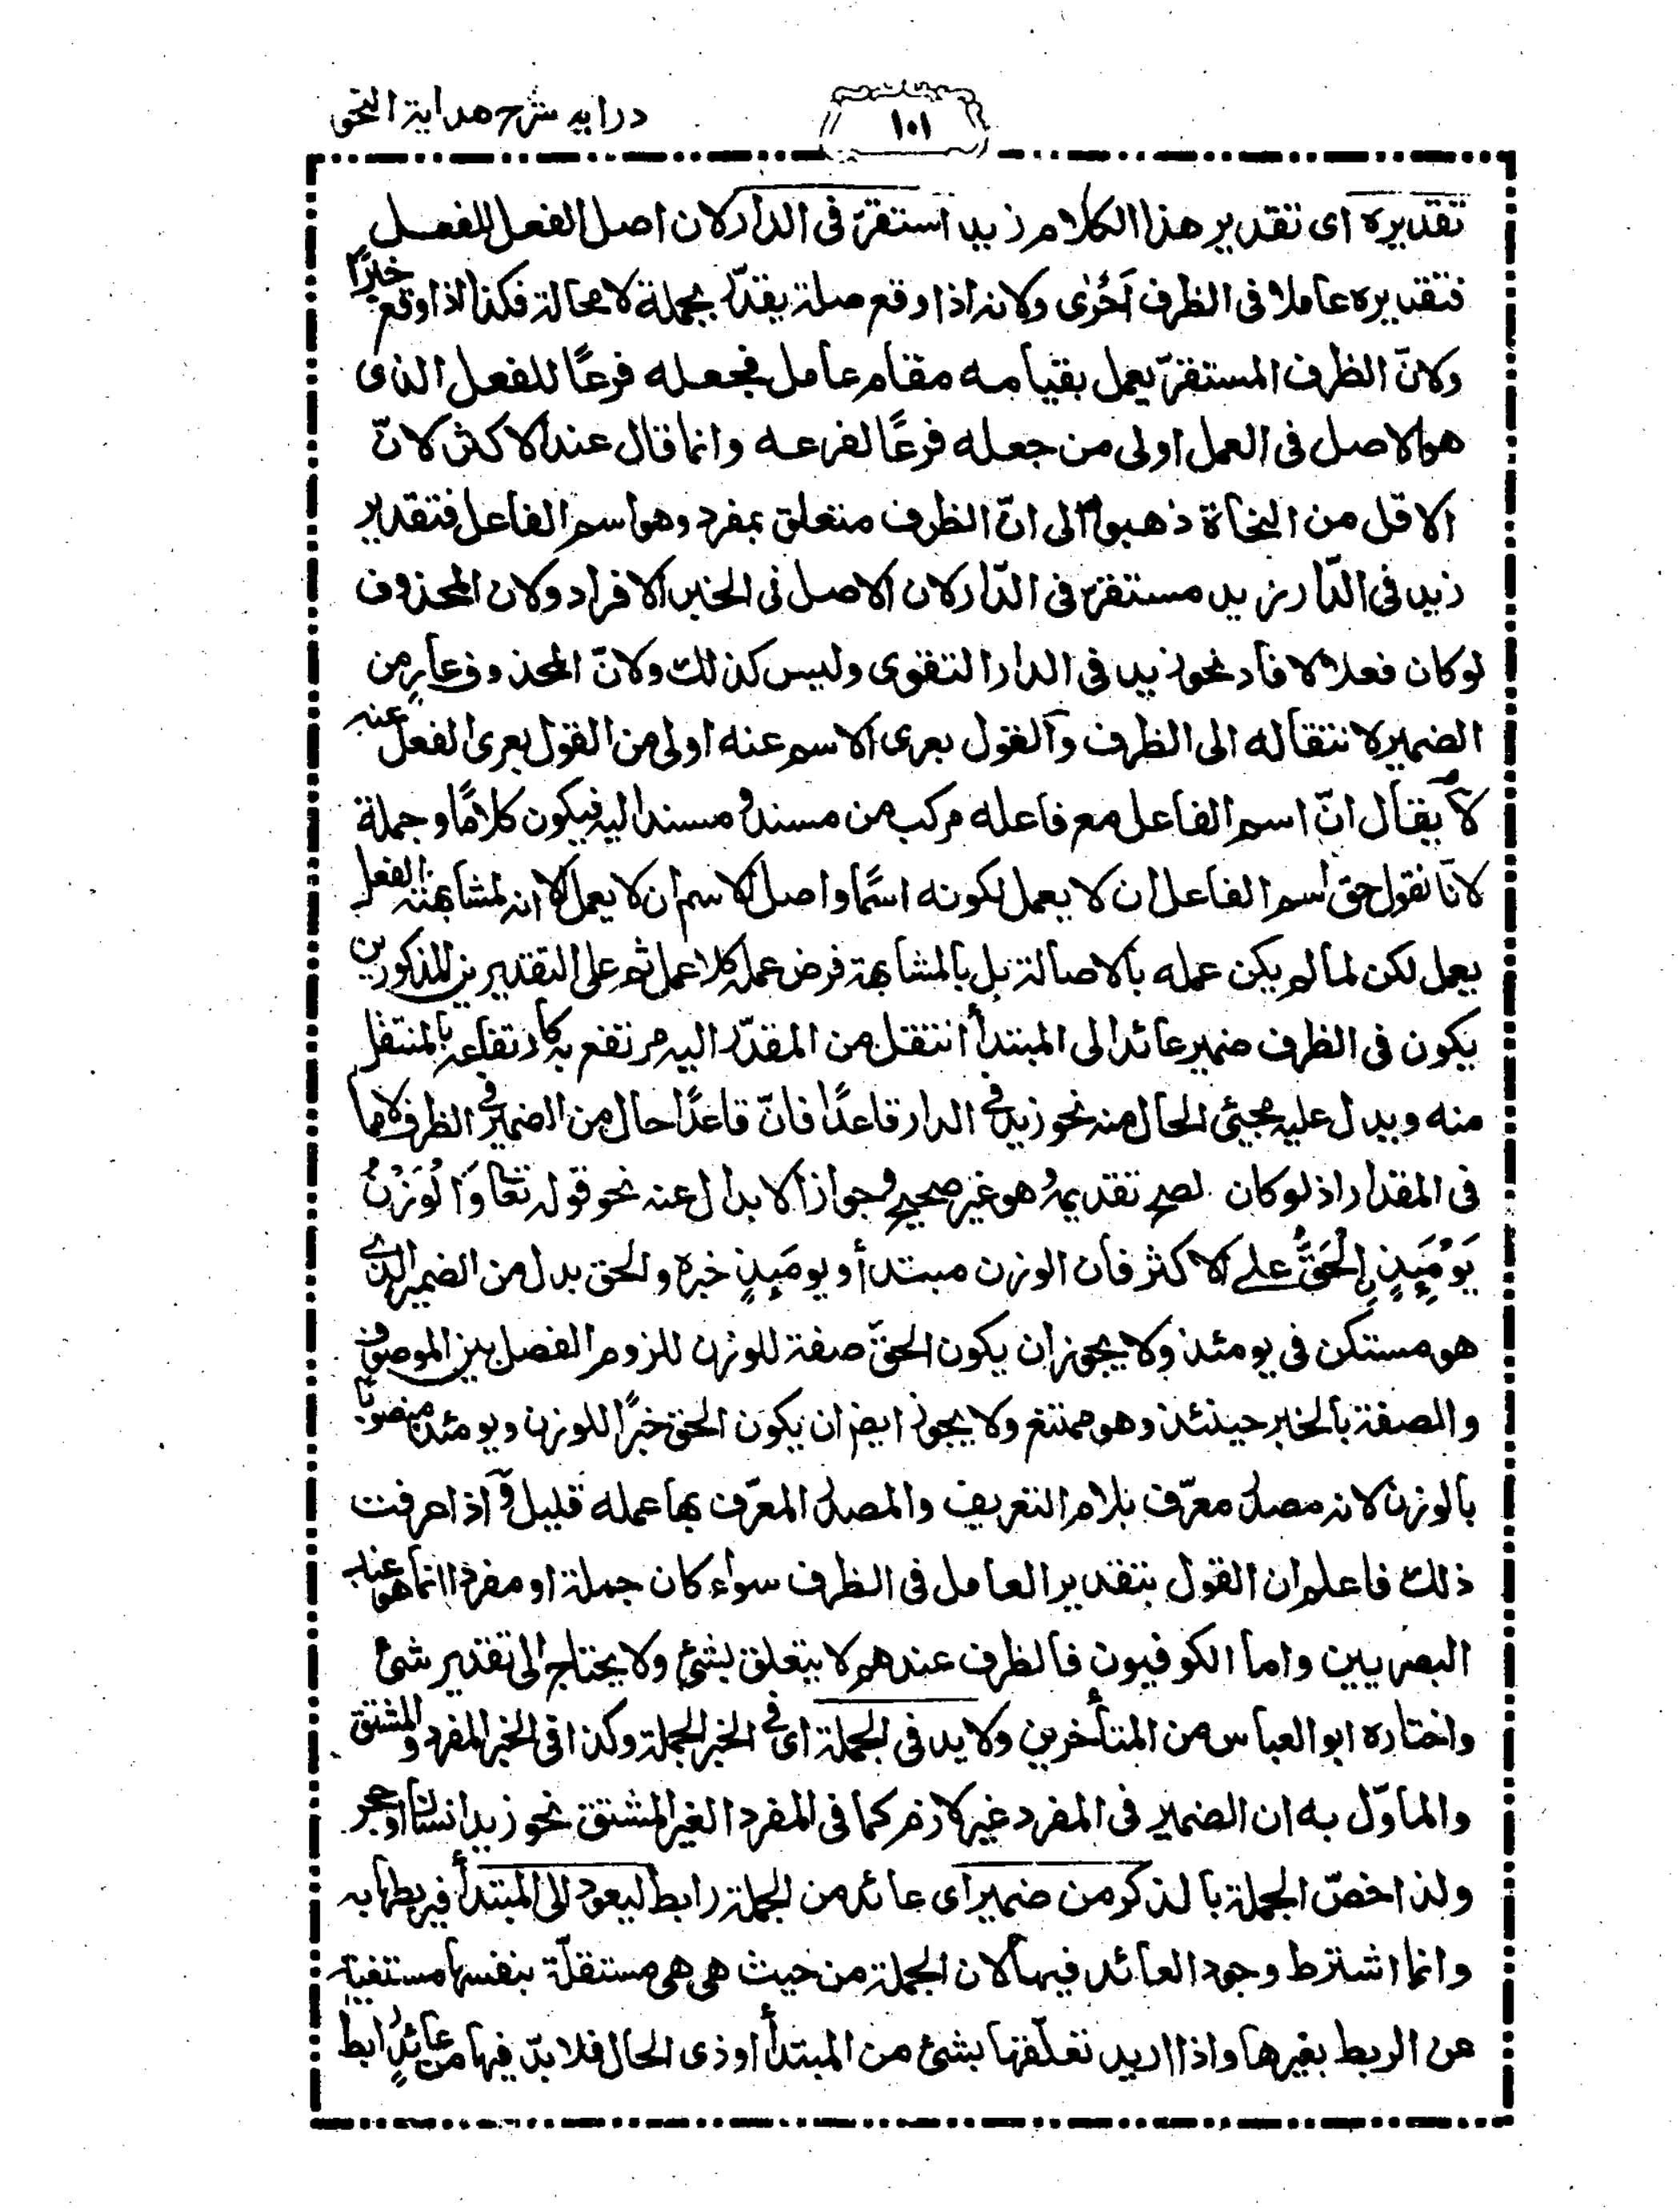 درايه شرح هداية النحو
١٠١
تقديره اى تقدير هذا الكلام زيد استقرّ فى الدار لان اصل الفعل للفعل
فتقديره عاملا فى الظرف اَحْرٰى ولانه اذا وقع صلة يقدّر بجملة لا محالة فكذا اذا وقع خبرًا
ولانّ الظرف المستقرّ يعمل بقيامه مقام عامل فجعله فرعًا للفعل الذى
هو الاصل فى العمل اولى من جعله فرعًا لفرعه وانما قال عند الاكثر لانّ
الاقل من النحاة ذهبوا الى انّ الظرف متعلق بمفرد وهو اسم الفاعل فتقدير
زيد فى الدّار زيد مستقرّ فى الدّار لان الاصل فى الخبر الافراد ولان المحذوف
لو كان فعلا لافاد نحو زيد فى الدار التقوى وليس كذلك ولانّ المحذوف عارٍ من
الضمير لانتقاله الى الظرف والقول بعرى الاسم عنه اولى من القول بعرى الفعل عنه
لا يقال انّ اسم الفاعل مع فاعله مركب من مسند ومسند اليه فيكون كلامًا وجملة
لانّا نقول حق اسم الفاعل ان لا يعمل لكونه اسمًا واصل الاسم ان لا يعمل الا انه لمشابهته الفعل
يعمل لكن لما لم يكن عمله بالاصالة بل بالمشابهة فرض عمله كلا عمل ثم على التقديرين المذكورين
يكون فى الظرف ضمير عائد الى المبتدأ انتقل من المقدّر اليه مرتفع به كارتفاعه بالمنتقل
منه ويدل عليه مجيئ الحال منه نحو زيد فى الدار قاعدًا فانّ قاعدًا حال من الضمير فى الظرف لا ما
فى المقدار اذ لو كان لصح تقديمه وهو غير صحيح وجواز الابدال عنه نحو قوله تعا وَالْوَزْنُ
يَوْمَئِذٍ الْحَقُّ على الاكثر فان الوزن مبتدأ ويومَئِذٍ خبره والحق بدل من الضمير الذى
هو مستكن فى يومئذ ولا يجوز ان يكون الحقّ صفة للوزن للزوم الفصل بين الموصوف
والصفة بالخبر حينئذ وهو ممتنع ولا يجوز ايضا ان يكون الحق خبرًا للوزن ويومئذ منصوبًا
بالوزن لانه مصدر معرّف بلام التعريف والمصدر المعرّف بها عمله قليل واذا عرفت
ذلك فاعلم ان القول بتقدير العامل فى الظرف سواء كان جملة او مفردا انما هو عند
البصريين واما الكوفيون فالظرف عندهم لا يتعلق بشئ ولا يحتاج الى تقدير شئ
واختاره ابو العباس من المتأخرين ولابد فى الجملة اى فى الخبر الجملة وكذا فى الخبر المفرد والمشتق
والماوّل به ان الضمير فى المفرد غير لازم كما فى المفرد الغير المشتق نحو زيد انسان او حجر
ولذا خصّ الجملة بالذكر من ضمير اى عائد من الجملة رابط ليعود الى المبتدأ فيربطها به
وانما اشترط وجود العائد فيها لان الجملة من حيث هى هى مستقلّة بنفسها مستغنية
عن الربط بغيرها واذا اريد تعلّقها بشئ من المبتدأ او ذى الحال فلا بدّ فيها من عائدٍ رابط